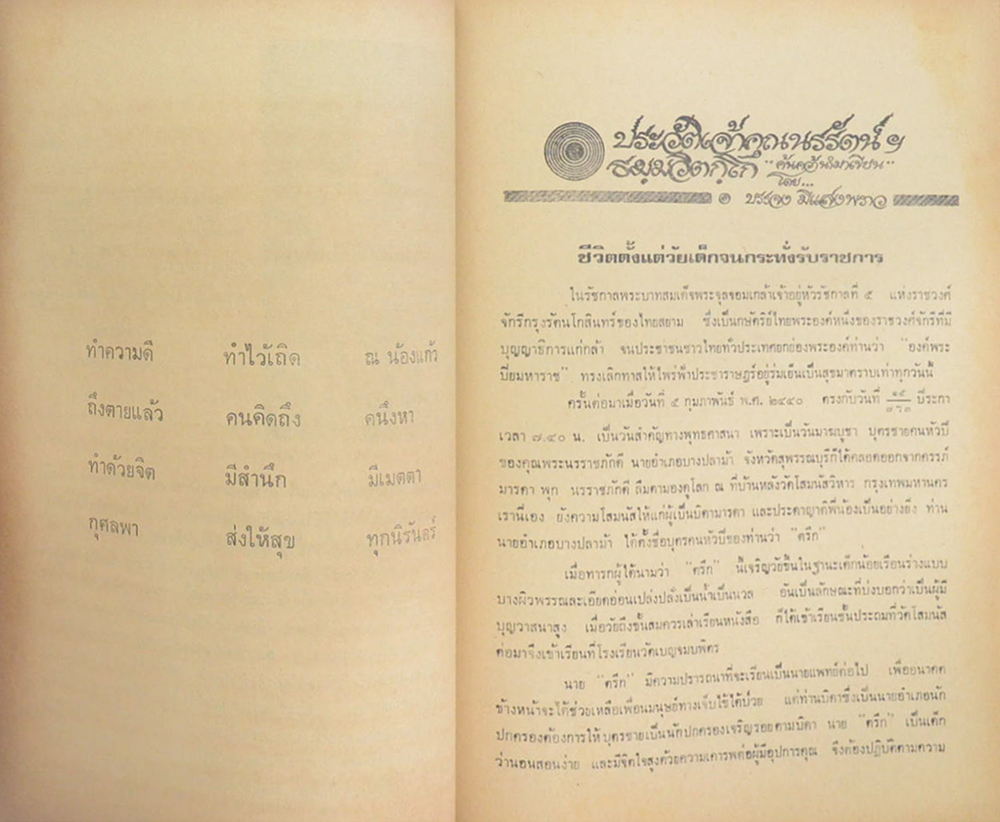 ทำความดี ทำไว้เถิด ณ น้องแก้ว
ถึงตายแล้ว คนคิดถึง คนึงหา
ทำด้วยจิต มีสำนึก มีเมตตา
กุศลพา ส่งให้สุข ทุกนิรันดร์
ประวัติเจ้าคุณนรรัตน์ ฯ
ธมฺมวิตกฺโก "ค้นคว้านำมาเขียน"
โดย...
๑ บรรจง มีแสงพราว
ชีวิตตั้งแต่วัยเด็กจนกระทั่งรับราชการ
ในรัชกาลพระบาทสมเด็จพระจุลจอมเกล้าเจ้าอยู่หัวรัชกาลที่ ๕ แห่งราชวงศ์
จักรีกรุงรัตนโกสินทร์ของไทยสยาม ซึ่งเป็นกษัตริย์ไทยพระองค์หนึ่งของราชวงศ์จักรีที่มี
บุญญาธิการแก่กล้า จนประชาชนชาวไทยทั่วประเทศยกย่องพระองค์ท่านว่า "องค์พระ
ปิยมหาราช" ทรงเลิกทาสให้ไพร่ฟ้าประชาราษฎร์อยู่ร่มเย็นเป็นสุขมาตราบเท่าทุกวันนี้
ครั้นต่อมาเมื่อวันที่ ๕ กุมภาพันธ์ พ.ศ. ๒๔๔๐ ตรงกับวันที่ ปีระกา
เวลา ๗.๔๐ น. เป็นวันสำคัญทางพุทธศาสนา เพราะเป็นวันมาฆบูชา บุตรชายคนหัวปี
ของคุณพระนรราชภักดี นายอำเภอบางปลาม้า จังหวัดสุพรรณบุรีก็ได้คลอดออกจากครรภ์
มารดา พุก นรราชภักดี ลืมตามองดูโลก ณ ที่บ้านหลังวัดโสมนัสวิหาร กรุงเทพมหานคร
เรานี่เอง ยังความโสมนัสให้แก่ผู้เป็นบิดามารดา และประดาญาติพี่น้องเป็นอย่างยิ่ง ท่าน
นายอำเภอบางปลาม้า ได้ตั้งชื่อบุตรคนหัวปีของท่านว่า "ตรึก"
เมื่อทารกผู้ได้นามว่า "ตรึก" นี้เจริญวัยขึ้นในฐานะเด็กน้อยเรือนร่างแบบ
บางผิวพรรณละเอียดอ่อนเปล่งปลั่งเป็นน้ำเป็นนวล อันเป็นลักษณะที่บ่งบอกว่าเป็นผู้มี
บุญวาสนาสูง เมื่อวัยถึงขั้นสมควรเล่าเรียนหนังสือ ก็ได้เข้าเรียนชั้นประถมที่วัดโสมนัส
ต่อมาจึงเข้าเรียนที่โรงเรียนวัดเบญจมบพิตร
นาย "ตรึก" มีความปรารถนาที่จะเรียนเป็นนายแพทย์ต่อไป เพื่ออนาคต
ข้างหน้าจะได้ช่วยเหลือเพื่อนมนุษย์ทางเจ็บไข้ได้ป่วย แต่ท่านบิดาซึ่งเป็นนายอำเภอนัก
ปกครองต้องการให้บุตรชายเป็นนักปกครองเจริญรอยตามบิดา นาย "ตรึก" เป็นเด็ก
ว่านอนสอนง่าย และมีจิตใจสูงด้วยความเคารพต่อผู้มีอุปการคุณ จึงต้องปฏิบัติตามความ